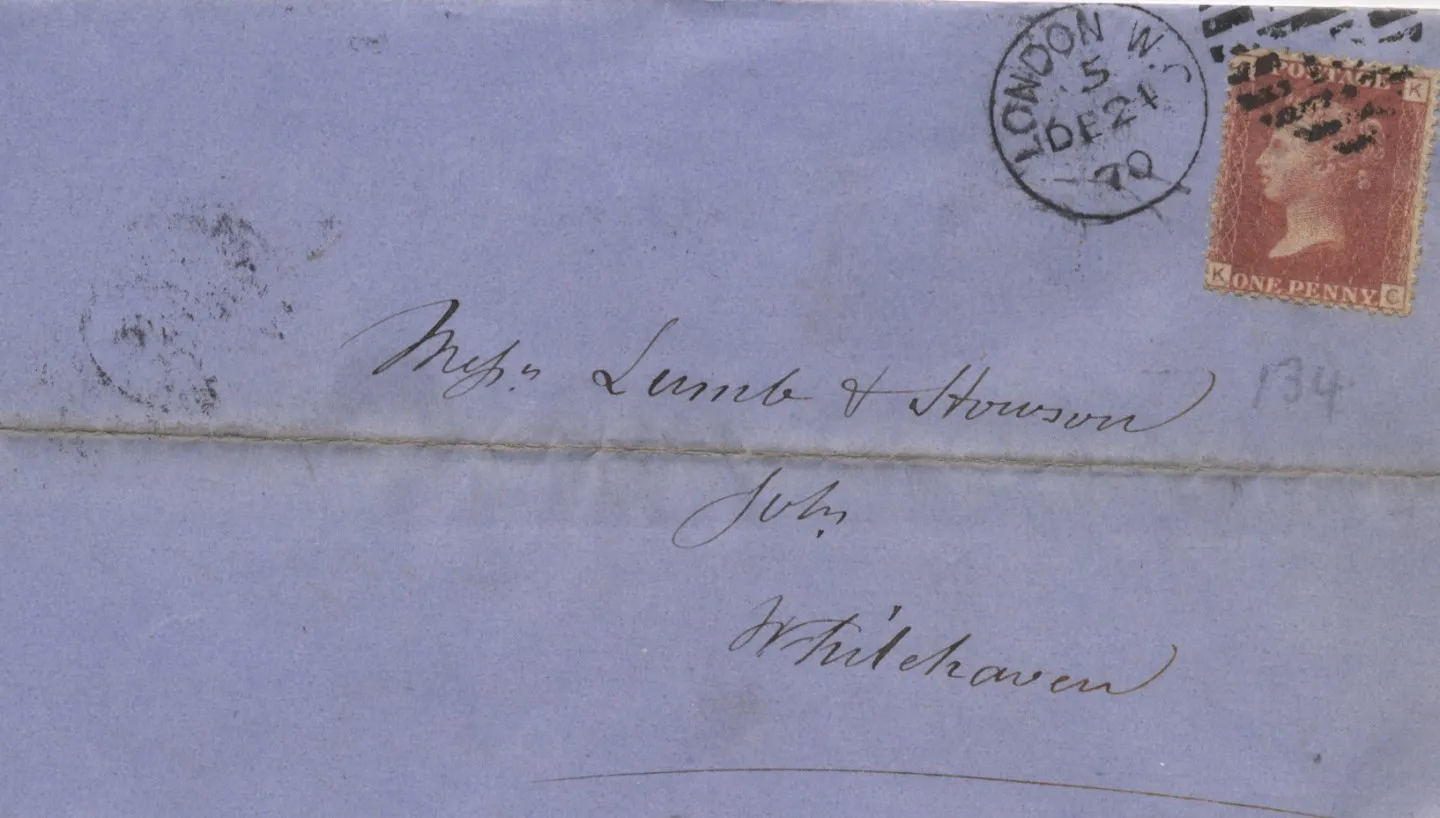 LONDON W.C
5
DE 21
70
POSTAGE
K
K ONE PENNY. C
Messrs. Lumb & Howson
134
Solrs.
Whitehaven